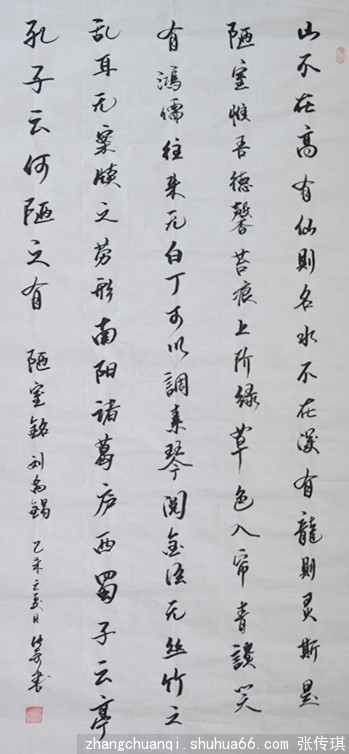 山不在高有仙則名水不在深有龍則灵斯是
陋室惟吾德馨苔痕上阶绿草色入帘青談笑
有鴻儒往来无白丁可以調素琴阅金经无丝竹之
乱耳无案牍之劳形南阳諸葛庐西蜀子云亭
孔子云何陋之有
陋室銘刘禹锡乙未之夏日传琪书
zhangchuanqi.shuhua66.com 张传琪